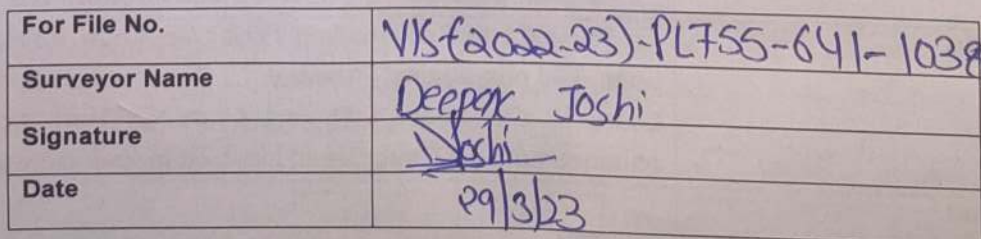 For File No. VIS(2022-23)-PL755-641-1038
Surveyor Name Deepak Joshi
Signature Joshi
Date 29/3/23